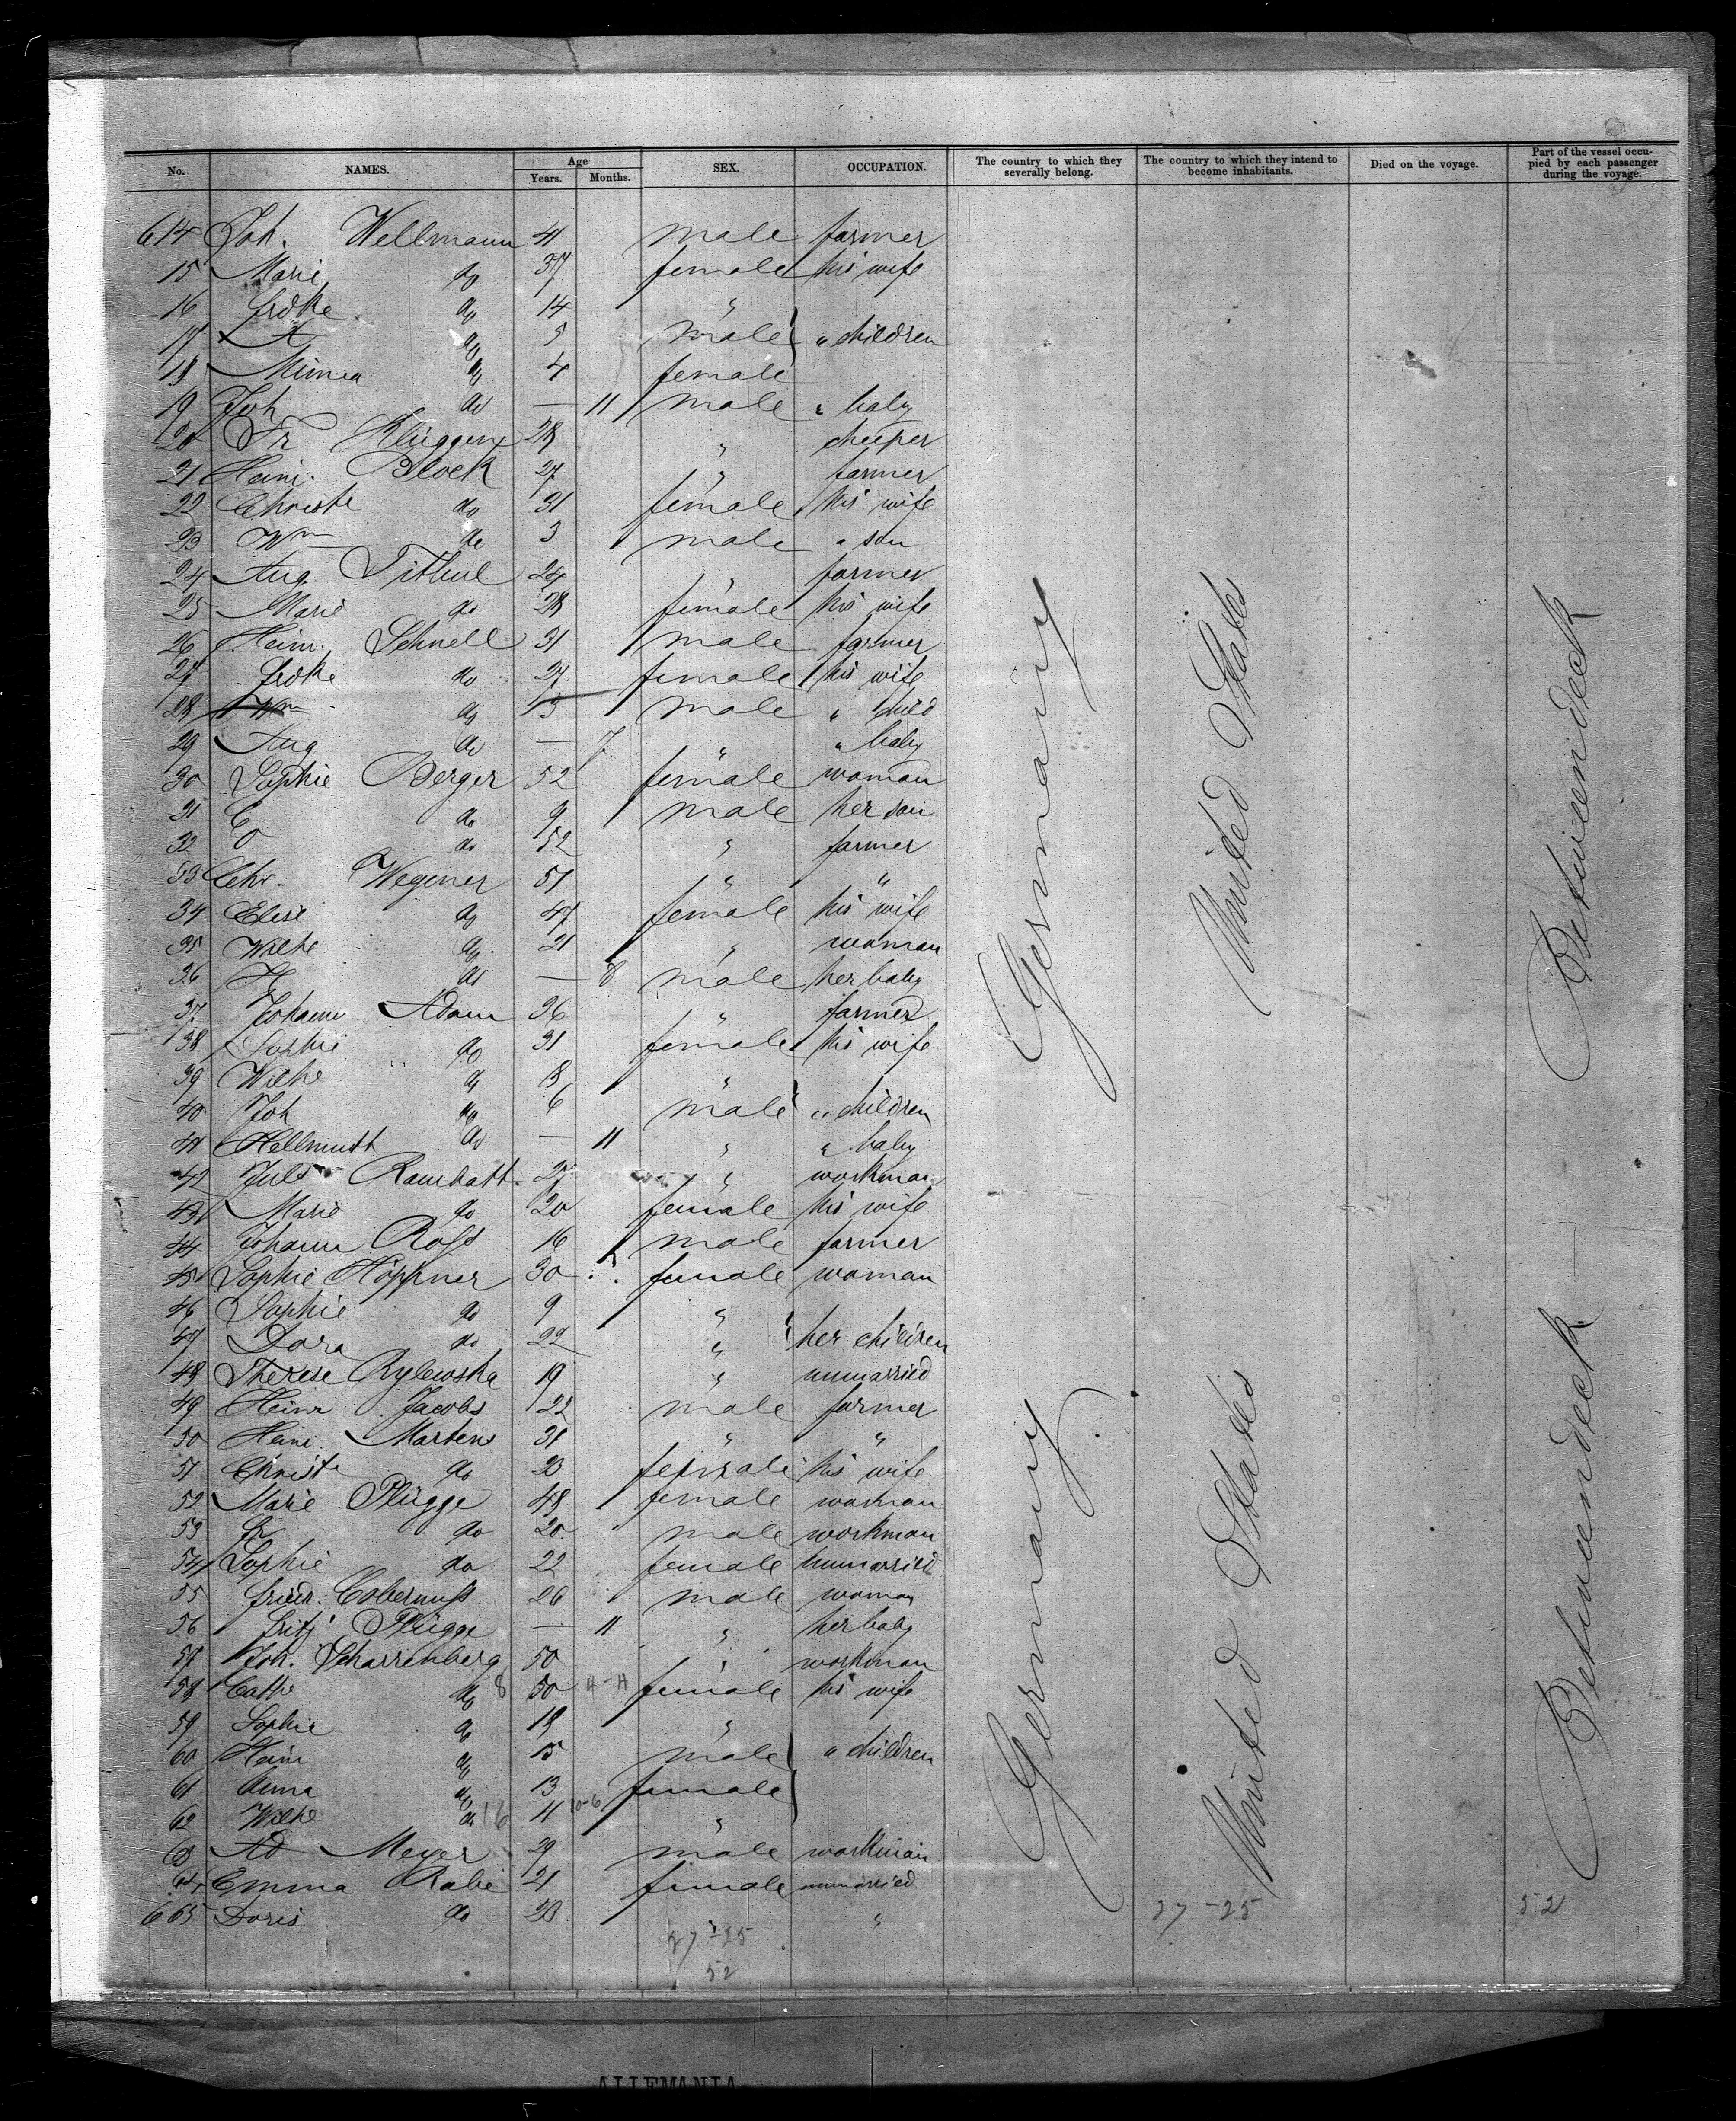 No. NAMES. Age Years. Months. SEX. OCCUPATION. The country to which they severally belong. The country to which they intend to become inhabitants. Died on the voyage. Part of the vessel occupied by each passenger during the voyage.
614 Joh. Wellmann 41 male farmer
15 Marie do 37 female his wife
16 Fridke do 14 "
17 A do 5 male " children
18 Minna do 4 female
19 Joh do — 11 male " baby
20 Fr Klüggen 28 "
21 Heinr. Block 27 " farmer
22 Christe do 31 female his wife
23 Wm do 3 male " son
24 Aug. 24 " farmer
25 Marie do 28 female his wife
26 Heinr. Schnell 31 male farmer
27 Fridke do 27 female his wife
28 Wm do 3 male " child
29 Aug do — 7 " " baby
30 Sophie Berger 52 female woman
31 E do 9 male her son
32 do 52 " farmer
33 Chr. Wegener 51 " "
34 Elise do 47 female his wife
35 Wilhe do 21 " woman
36 H do — 8 male her baby
37 Johann Adam 36 " farmer
38 Sophie do 31 female his wife
39 Wilhe do 8 "
40 Joh do 6 male " children
41 Hellmuth do — 11 " " baby
42 Juls Rambatt 27 " workman
43 Marie do 20 female his wife
44 Johann Ross 16 male farmer
45 Sophie Höppner 30 female woman
46 Sophie do 9 "
47 Dora do 22 " her children
48 Therese Rylewska 19 " unmarried
49 Heinr Jacobs 22 male farmer
50 Heinr. Martens 31 " "
51 Christe do 23 female his wife
52 Marie Plügge 48 female woman
53 Fr do 20 male workman
54 Sophie do 22 female unmarried
55 Friedr. Cobernuss 26 male woman
56 Fritz Plügge — 11 " her baby
57 Joh. Scharrenberg 50 " workman
58 Cathe do 8 50 female his wife
59 Sophie do 18 "
60 Heinr do 15 male " children
61 Anna do 13 female
62 Wilhe do 16 11 10-6 "
63 Ad Meyer 29 male workman
64 Emma Rabe 21 female unmarried
665 Doris do 23 "
Germany United States Betweendeck
Germany United States Betweendeck
27-25 27-25 52
52
ALLEMANIA